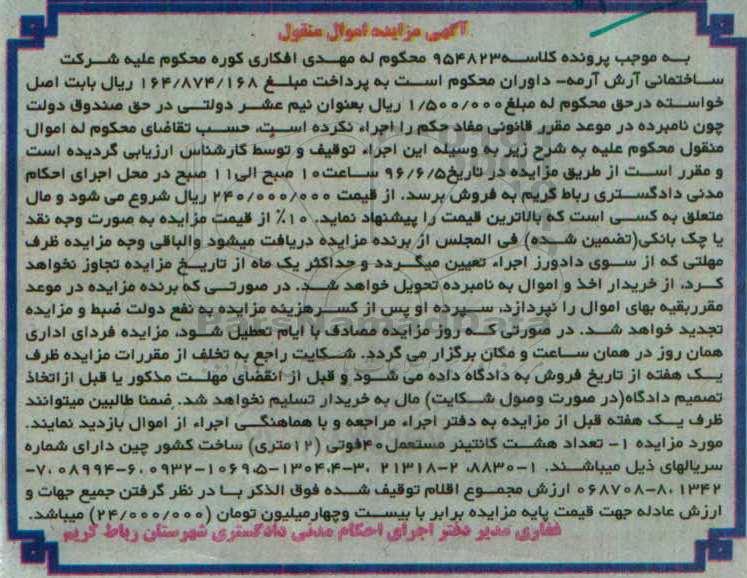 آگهی مزایده اموال منقول
به موجب پرونده کلاسه۹۵۴۸۲۳ محکوم له مهدی افکاری کوره محکوم علیه شرکت
ساختمانی آرش آرمه- داوران محکوم است به پرداخت مبلغ ۱۶۴/۸۷۴/۱۶۸ ریال بابت اصل
خواسته درحق محکوم له مبلغ۱/۵۰۰/۰۰۰ ریال بعنوان نیم عشر دولتی در حق صندوق دولت
چون نامبرده در موعد مقرر قانونی مفاد حکم را اجراء نکرده است، حسب تقاضای محکوم له اموال
منقول محکوم علیه به شرح زیر به وسیله این اجراء توقیف و توسط کارشناس ارزیابی گردیده است
و مقرر است از طریق مزایده در تاریخ۹۶/۶/۵ ساعت۱۰ صبح الی۱۱ صبح در محل اجرای احکام
مدنی دادگستری رباط کریم به فروش برسد. از قیمت ۲۴۰/۰۰۰/۰۰۰ ریال شروع می شود و مال
متعلق به کسی است که بالاترین قیمت را پیشنهاد نماید. ۱۰٪ از قیمت مزایده به صورت وجه نقد
یا چک بانکی(تضمین شده) فی المجلس از برنده مزایده دریافت میشود والباقی وجه مزایده ظرف
مهلتی که از سوی دادورز اجراء تعیین میگردد و حداکثر یک ماه از تاریخ مزایده تجاوز نخواهد
کرد، از خریدار اخذ و اموال به نامبرده تحویل خواهد شد. در صورتی که برنده مزایده در موعد
مقرربقیه بهای اموال را نپردازد، سپرده او پس از کسرهزینه مزایده به نفع دولت ضبط و مزایده
تجدید خواهد شد. در صورتی که روز مزایده مصادف با ایام تعطیل شود، مزایده فردای اداری
همان روز در همان ساعت و مکان برگزار می گردد. شکایت راجع به تخلف از مقررات مزایده ظرف
یک هفته از تاریخ فروش به دادگاه داده می شود و قبل از انقضای مهلت مذکور یا قبل ازاتخاذ
تصمیم دادگاه(در صورت وصول شکایت) مال به خریدار تسلیم نخواهد شد. ضمنا طالبین میتوانند
ظرف یک هفته قبل از مزایده به دفتر اجراء مراجعه و با هماهنگی اجراء از اموال بازدید نمایند.
مورد مزایده ۱- تعداد هشت کانتینر مستعمل۴۰فوتی (۱۲متری) ساخت کشور چین دارای شماره
سریالهای ذیل میباشند. ۱-۰۸۸۳۰، ۲-۲۱۳۱۸ ،۳-۱۳۰۴،۴-۱۰۶۹،۵-۰۹۳۲ ،۶-۰۸۹۹۴ ،۷-
۰۶۸۷۰۸-۸،۱۳۴۲ ارزش مجموع اقلام توقیف شده فوق الذکر با در نظر گرفتن جمیع جهات و
ارزش عادله جهت قیمت پایه مزایده برابر با بیست وچهارمیلیون تومان (۲۴/۰۰۰/۰۰۰) میباشد.
غفاری مدیر دفتر اجرای احکام مدنی دادگستری شهرستان رباط کریم